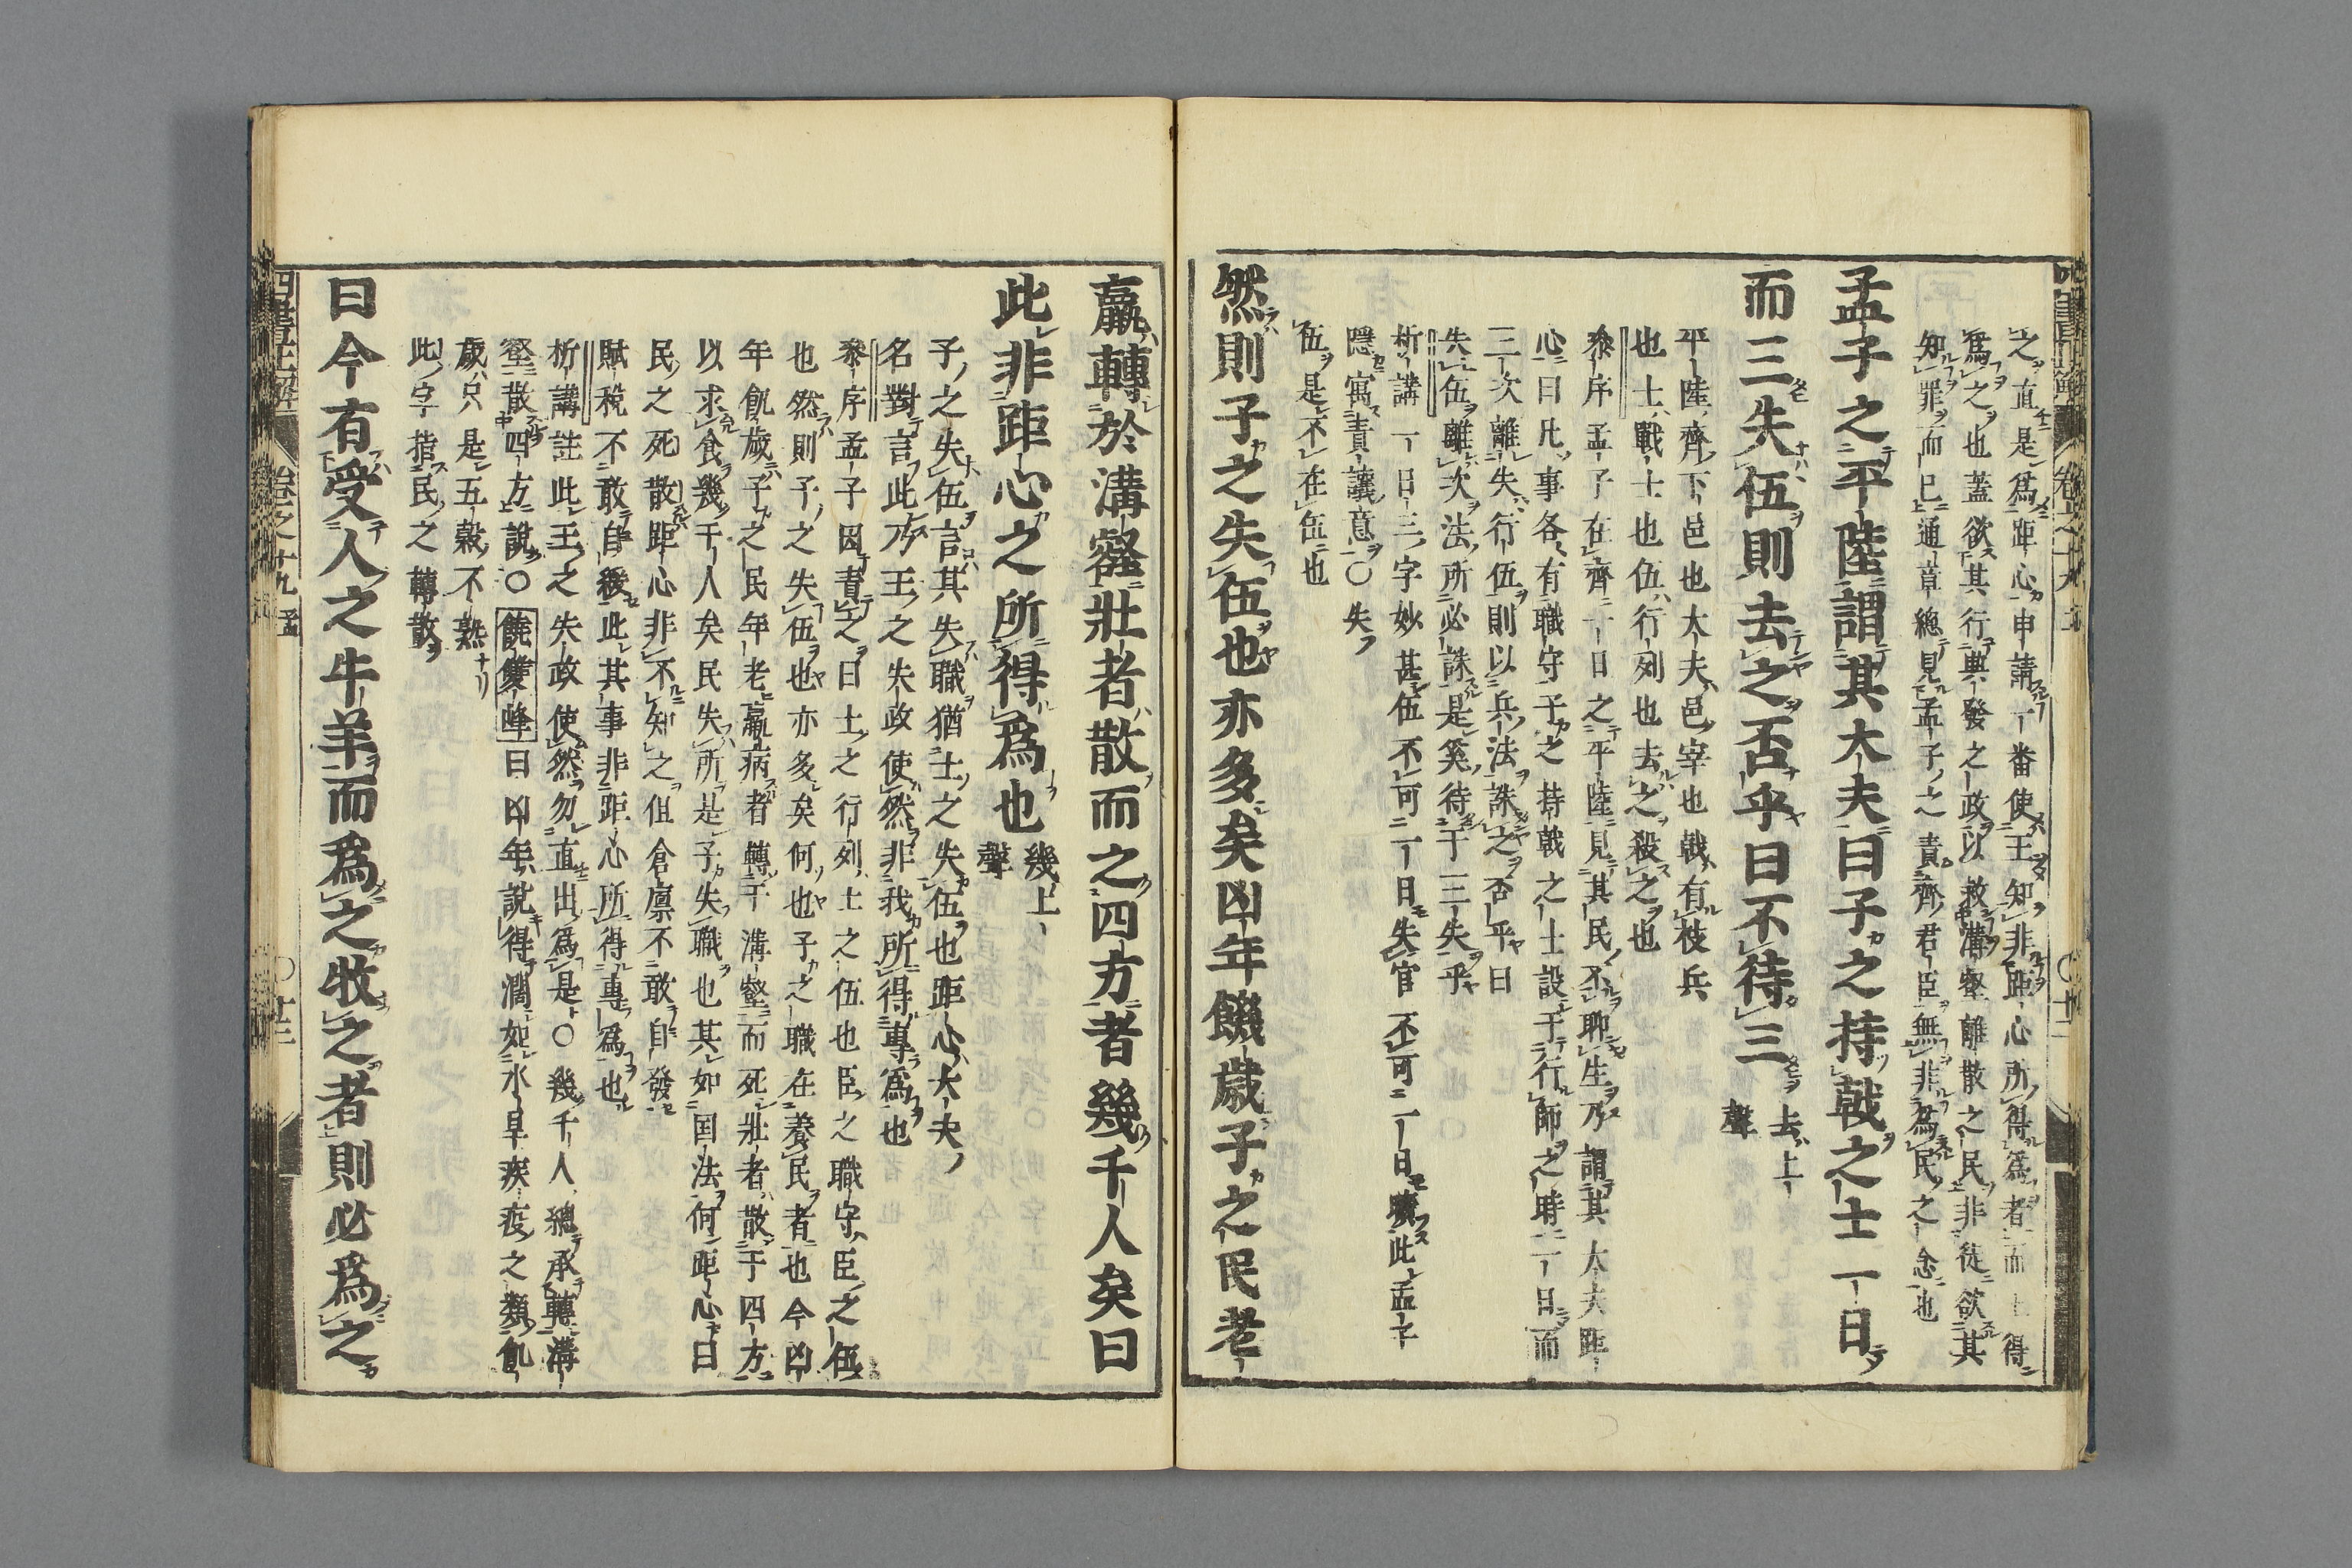 之直是爲距心申請一番使王知非距心所得爲者而上得
爲之也蓋欲其行興發之政以救溝壑離散之民非徒欲其
知罪而已通章總見孟子之責齊君臣無非爲民之念也
孟子之平陸謂其大夫曰子之持戟之士一日
而三失伍則去之否乎曰不待三去上聲
平陸齊下邑也大夫邑宰也戟有枝兵
也士戰士也伍行列也去之殺之也
參序孟子在齊一日之平陸見其民不聊生乃謂其大夫距
心曰凡事各有職守子之持戟之士設于行師之時一日而
三次離失行伍則以兵法誅之否乎曰
失伍離次法所必誅是奚待于三失乎
析講一日三字妙甚伍不可一日失官不可一日曠此孟子
隱寓責讓意○失
伍是不在伍也
然則子之失伍也亦多矣凶年饑歲子之民老
羸轉於溝壑壯者散而之四方者幾千人矣曰
此非距心之所得爲也幾上聲
子之失伍言其失職猶士之失伍也距心大夫
名對言此乃王之失政使然非我所得專爲也
參序孟子因責之曰士之行列士之伍也臣之職守臣之伍
也然則子之失伍也亦多矣何也子之職在養民者也今凶
年飢歲子之民年老羸病者轉于溝壑而死壯者散于四方
以求食幾千人矣民失所是子失職也其如国法何距心曰
民之死散距心非不知之但倉廩不敢自發
賦稅不敢自緩此其事非距心所得專爲也
析講註此王之失政使然勿直出爲是○幾千人總承轉溝
壑散四方說○饒雙峰曰凶年說得濶如水旱疾疫之類飢
歲只是五穀不熟
此字指民之轉散
曰今有受人之牛羊而爲之牧之者則必爲之
四書正解 卷之十九 孟 ○ 十三